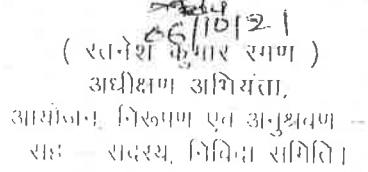 06/10/21
( रतनेश कुमार रमण )
अधीक्षण अभियंता,
आयोजन, निरूपण एवं अनुश्रवण –
सह – सदस्य, निविदा समिति।